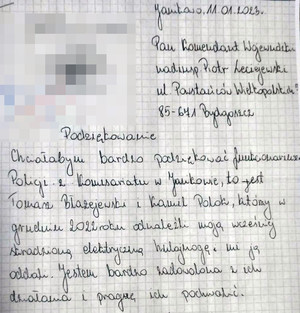 Janikowo, 11.01.2023.
Pan Komendant Wojewódzki
nadinsp Piotr Leciejewski
ul Powstańców Wielkopolskich
85-671 Bydgoszcz
Podziękowanie
Chciałabym bardzo podziękować funkcjonariuszom
Policji z Komisariatu w Janikowie, to jest
Tomasz Błażejewski i Kamil Polak, którzy w
grudniu 2022 roku odnaleźli moją wcześniej
skradzioną elektryczną hulajnogę i mi ją
oddali. Jestem bardzo zadowolona z ich
działania i pragnę ich pochwalić.